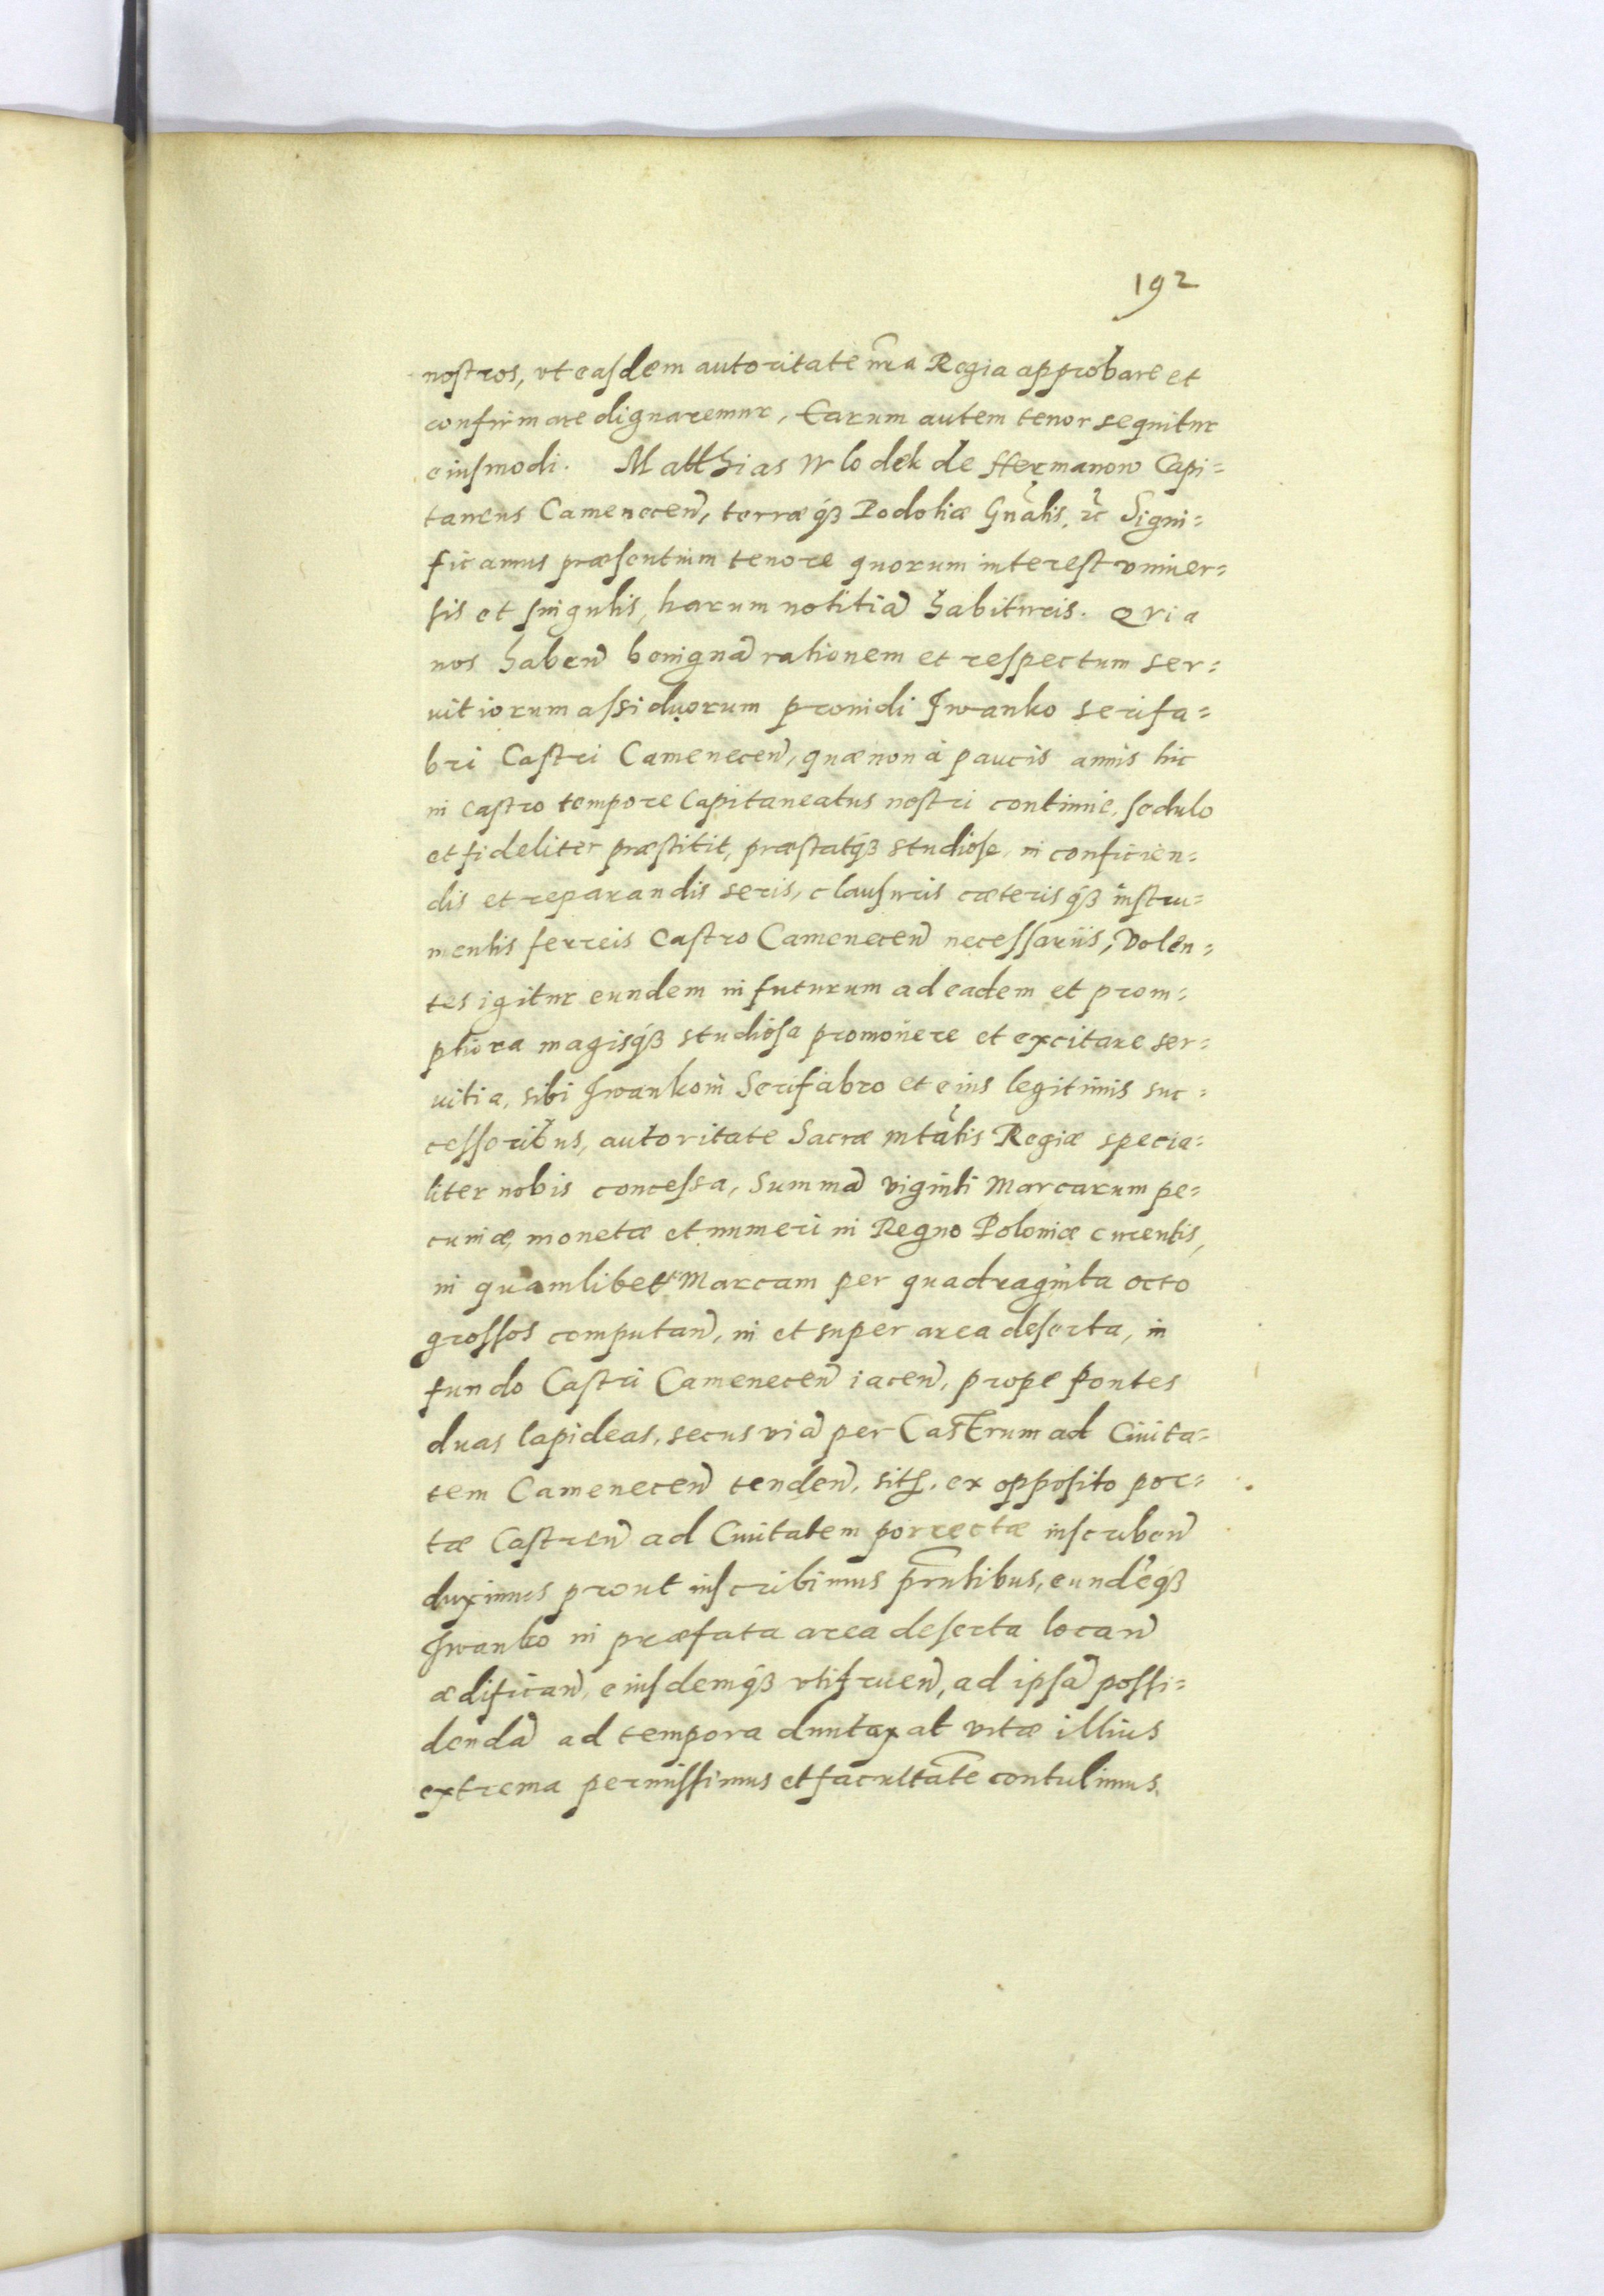 192
nostros, vt easdem autoritate nr̃a Regia approbare et
confirmare dignaremur, Earum autem tenor sequitur
eiusmodi. Matthias Wlodek de Hermanow Capi=
taneus Camenecen̄, terræq́ꝫ Podoliæ Gnãlis, ꝛc̃ Signi=
ficamus præsentium tenore quorum interest vniuer=
sis et singulis, harum notitiā habituris. Qvia
nos haben̄ benignā rationem et respectum ser=
uitiorum assiduorum prouidi Iwanko serifa=
bri Castri Camenecen̄, quæ non à paucis annis hic
in Castro tempore Capitaneatus nostri continue, sedulo
et fideliter præstitit, præstatq́ꝫ studiose, in conficien=
dis et reparandis seris, clausuris cæterisq́ꝫ instru=
mentis ferreis Castro Camenecen̄ necessariis, Volen=
tes igitur eundem in futurum ad eadem et prom=
ptiora magisq́ꝫ studiosa promouere et excitare ser=
uitia, sibi Iwankoni Serifabro et eius legitimis suc=
cessoribus, autoritate Sacræ Mtãtis Regiæ specia=
liter nobis concessa, Summā viginti Marcarum pe=
cuniæ, monetæ et numeri in Regno Poloniæ curentis,
in quamlibet Marcam per quadraginta octo
grossos computan̄, in et super area deserta, in
fundo Castri Camenecen̄ iacen̄, prope pontes
duas lapideas, secus viā per Castrum ad Ciuita=
tem Camenecen̄ tenden̄, sitꝭ. ex opposito por=
tæ Castren̄ ad Ciuitatem porrectæ inscriben̄
duximus prout inscribimus pr̃ntibus, eundēq́ꝫ
Iwanko in præfata area deserta locan̄
ædifican̄, eiusdemq́ꝫ vtifruen̄, ad ipsā possi=
dendā ad tempora duntaxat vitæ illius
extrema permissimus et facultatē contulimus.